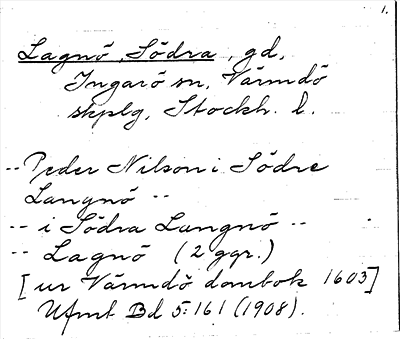 1.
Lagnö, Södra, gd,
Ingarö sn, Värmdö
skplg, Stockh. l.
-- Peder Nilson i Södre
Langnö --
-- i Södra Lungnö --
-- Lagnö (2 ggr.)
[ur Värmdö dombok 1603]
Ufmt Bd 5:161 (1908).